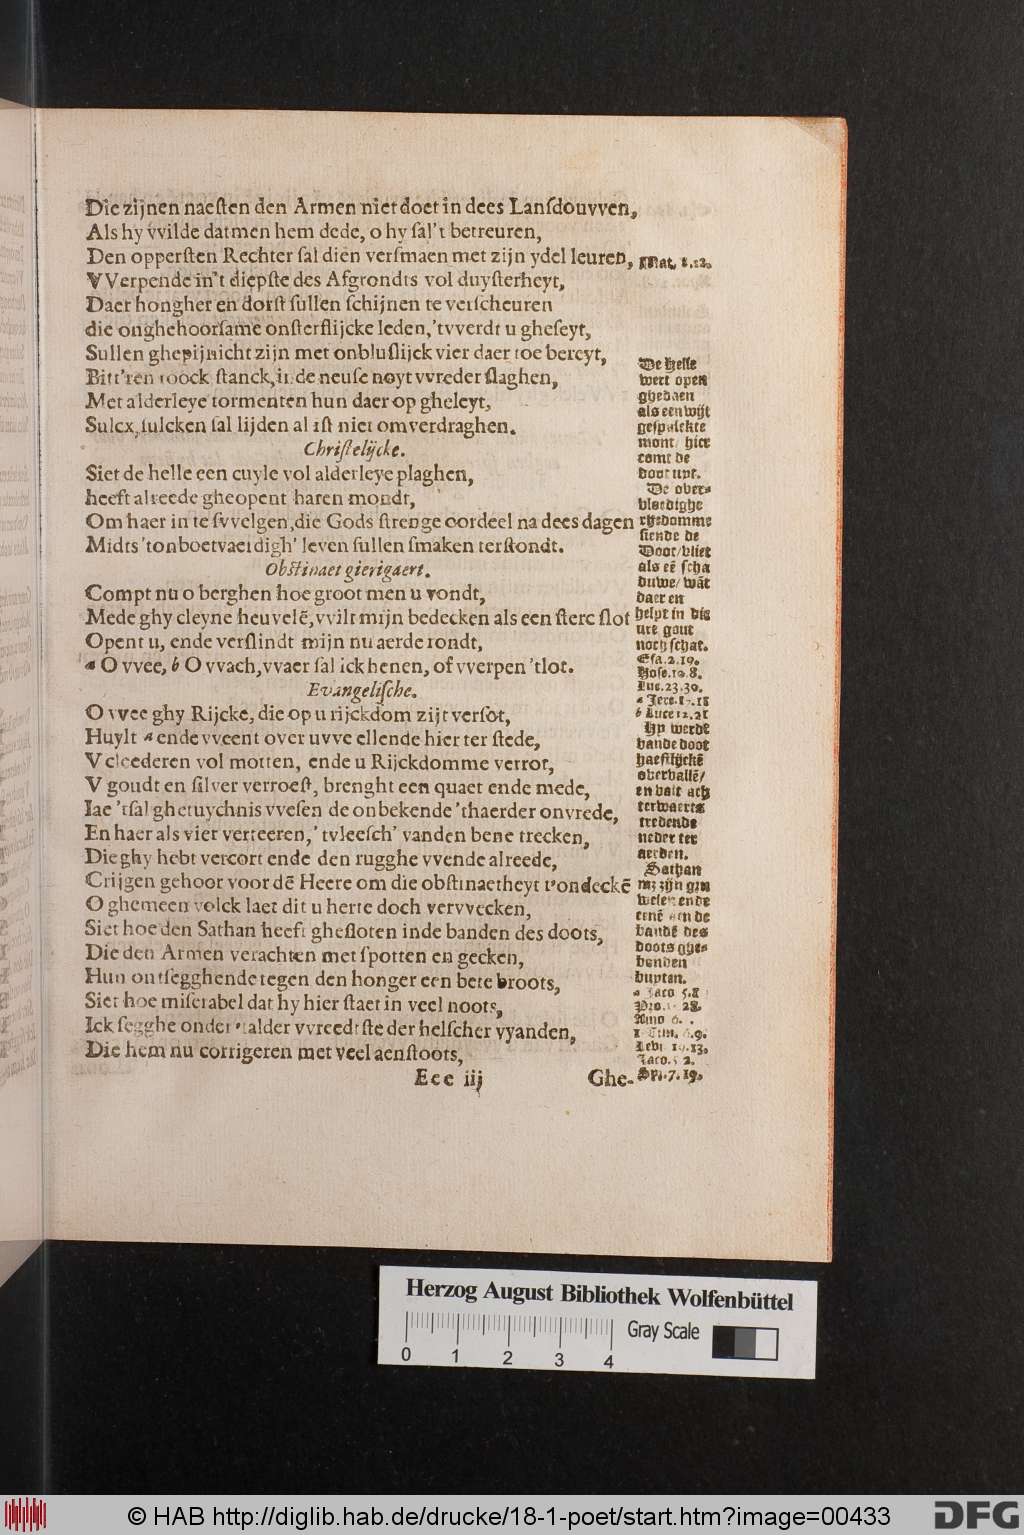 Die zijnen naeſten den Armen niet doet in dees Lanſdouvven,
Als hy vvilde datmen hem dede, o hy ſal't betreuren,
Den opperſten Rechter ſal dien verſmaen met zijn ydel leuren,
VVerpende in't diepſte des Afgrondts vol duyſterheyt,
Daer hongher en dorſt ſullen ſchijnen te verſcheuren
die onghehoorſame onſterflijcke leden,'tvverdt u gheſeyt,
Sullen ghepijnicht zijn met onbluſlijck vier daer toe bereyt,
Bitt'ren roock ſtanck, in de neuſe noyt vvreder ſlaghen,
Met alderleye tormenten hun daer op gheleyt,
Sulcx, ſulcken ſal lijden al iſt niet om verdraghen.
Chriſtelijcke.
Siet de helle een cuyle vol alderleye plaghen,
heeft alreede gheopent haren mondt,
Om haer in te ſvvelgen, die Gods ſtrenge oordeel na dees dagen
Midts 'tonboetvaerdigh' leven ſullen ſmaken terſtondt.
Obſtinaet gierigaert.
Compt nu o berghen hoe groot men u vondt,
Mede ghy cleyne heuvelē, vvilt mijn bedecken als een ſterc ſlot
Opent u, ende verſlindt mijn nu aerde rondt,
a O vvee, b O vvach, vvaer ſal ick henen, of vverpen 'tlot.
Evangeliſche.
O vvee ghy Rijcke, die op u rijckdom zijt verſot,
Huylt a ende vveent over uvve ellende hier ter ſtede,
V cleederen vol motten, ende u Rijckdomme verrot,
V goudt en ſilver verroeſt, brenght een quaet ende mede,
Iae 'tſal ghetuychnis vveſen de onbekende 'thaerder onvrede,
En haer als vier verteeren,' tvleeſch' vanden bene trecken,
Die ghy hebt vercort ende den rugghe vvende alreede,
Crijgen gehoor voor dē Heere om die obſtinaetheyt t'ondeckē
O ghemeen volck laet dit u herte doch vervvecken,
Siet hoe den Sathan heeft gheſloten inde banden des doots,
Die den Armen verachten met ſpotten en gecken,
Hun ontſegghende tegen den honger een bete broots,
Siet hoe miſerabel dat hy hier ſtaet in veel noots,
Ick ſegghe onder 'talder vvreedtſte der helſcher vyanden,
Die hem nu corrigeren met veel aenſtoots,
Eee iij
Ghe-
Mat. 8.12.
De Helle
wert open
ghedaen
als een wijt
geſpalckte
mont/ hier
comt de
doot uyt.
De over-
bloedighe
rijcdomme
ſiende de
Doot/vliet
als eē ſcha
duwe/ wāt
daer en
helpt in dis
ure gout
noch ſchat.
Eſa.2.19.
Hoſe.10.8.
Luc.23.30.
a Jere.15.18
b Luce 12.21
Hy werdē
vande doot
haeſtlijckē
overvallē/
en valt ach
terwaerts
tredende
neder ter
aerden.
Sathan
ende
aen de
bandē des
doots ghe-
bonden
buytan.
a Jaco 5.
28.
Amo 6.
Levi 19.13.
Jaco.5
7.19.
Herzog August Bibliothek Wolfenbüttel
Gray Scale
0 1 2 3 4
© HAB http://diglib.hab.de/drucke/18-1-poet/start.htm?image=00433
DFG